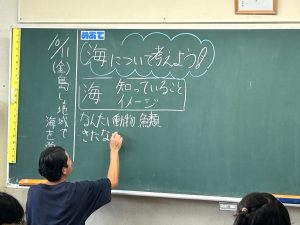 10/11
(金)島しょ地域で
海を
めあて
海について考えよう!
海 知っていること
イメージ
なんたい動物 魚類
きたな